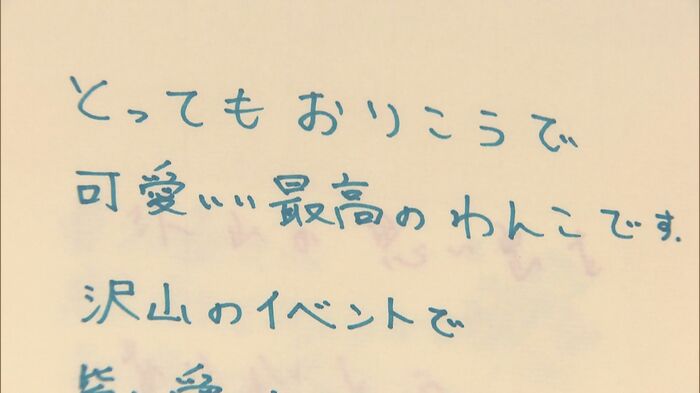 とってもおりこうで
可愛いい最高のわんこです.
沢山のイベントで